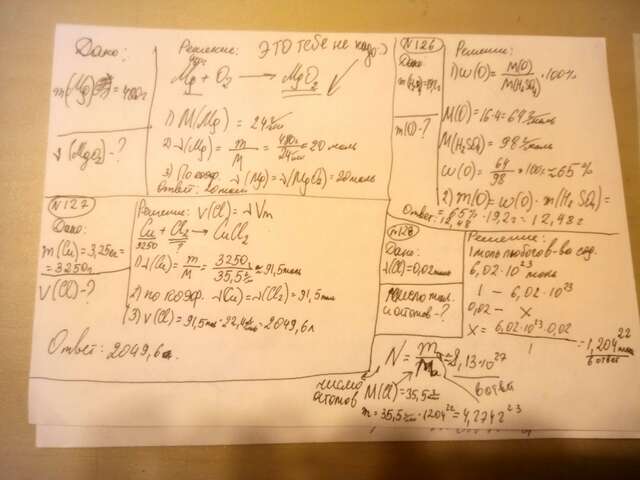 Дано:
m(Mg) = 480г
ν(MgO₂) - ?
Решение: ЭТО тебе не надо:)
Mg + O₂ → MgO₂
1) M(Mg) = 24 г/моль
2) ν(Mg) = m/M = 480г/24г/моль = 20 моль
3) По коэф. ν(Mg) = ν(MgO₂) = 20 моль
Ответ: 20 моль
N126
Дано:
m(O) - ?
Решение:
1) w(O) = M(O)/M(H₂SO₄) · 100%
M(O) = 16·4 = 64 г/моль
M(H₂SO₄) = 98 г/моль
w(O) = 64/98 · 100 = ≈65%
2) m(O) = w(O) · m(H₂SO₄) =
= 65% · 19,2г = 12,48г
Ответ: 12,48
N127
Дано:
m(Cu) = 3,25кг =
= 3250г
V(Cl) - ?
Решение: V(Cl) = νVm
Cu + Cl₂ → CuCl₂
3250 ?
1) ν(Cu) = m/M = 3250г/35,5 ≈ 91,5 моль
2) по коэф. ν(Cu) = ν(Cl₂) = 91,5
3) V(Cl) = 91,5 · 22,4 = 2049,6л
Ответ: 2049,6л.
N128
Дано:
ν(Cl) = 0,02моль
число мол.
и атомов - ?
Решение:
1 моль любого в-ва сод.
6,02 · 10²³
1 — 6,02 · 10²³
0,02 — x
X = 6,02·10²³·0,02 / 1 = 1,204 ²²
в ответ
N = m/M = 2,13·10²⁷
в ответ
число
атомов
M(Cl) = 35,5
m = 35,5 · 1204²² = 4,2742²³